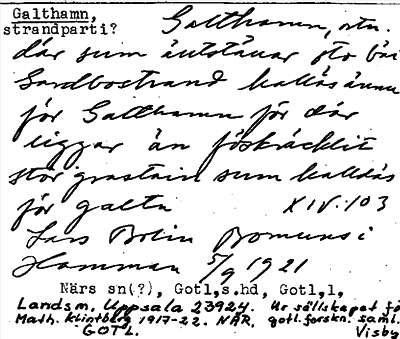 Galthamn,
strandparti?
Galthamn, stn.
där sum äutstäuar sto bäi
Sandbostrand kalläs ännu
för Galthamn för där
liggar än föskräcklit
stor grastain sum kalläs
för galtn XIV:103
Lars Bolin Bomunds i
Hamman 5/9 1921
Närs sn(?), Gotl,s.hd, Gotl,l,
Landsm. Uppsala 23924. Ur sällskapet fö
Math. Klintberg 1917-22. NÄR, gotl. forskn. saml.
GOTL. Visby